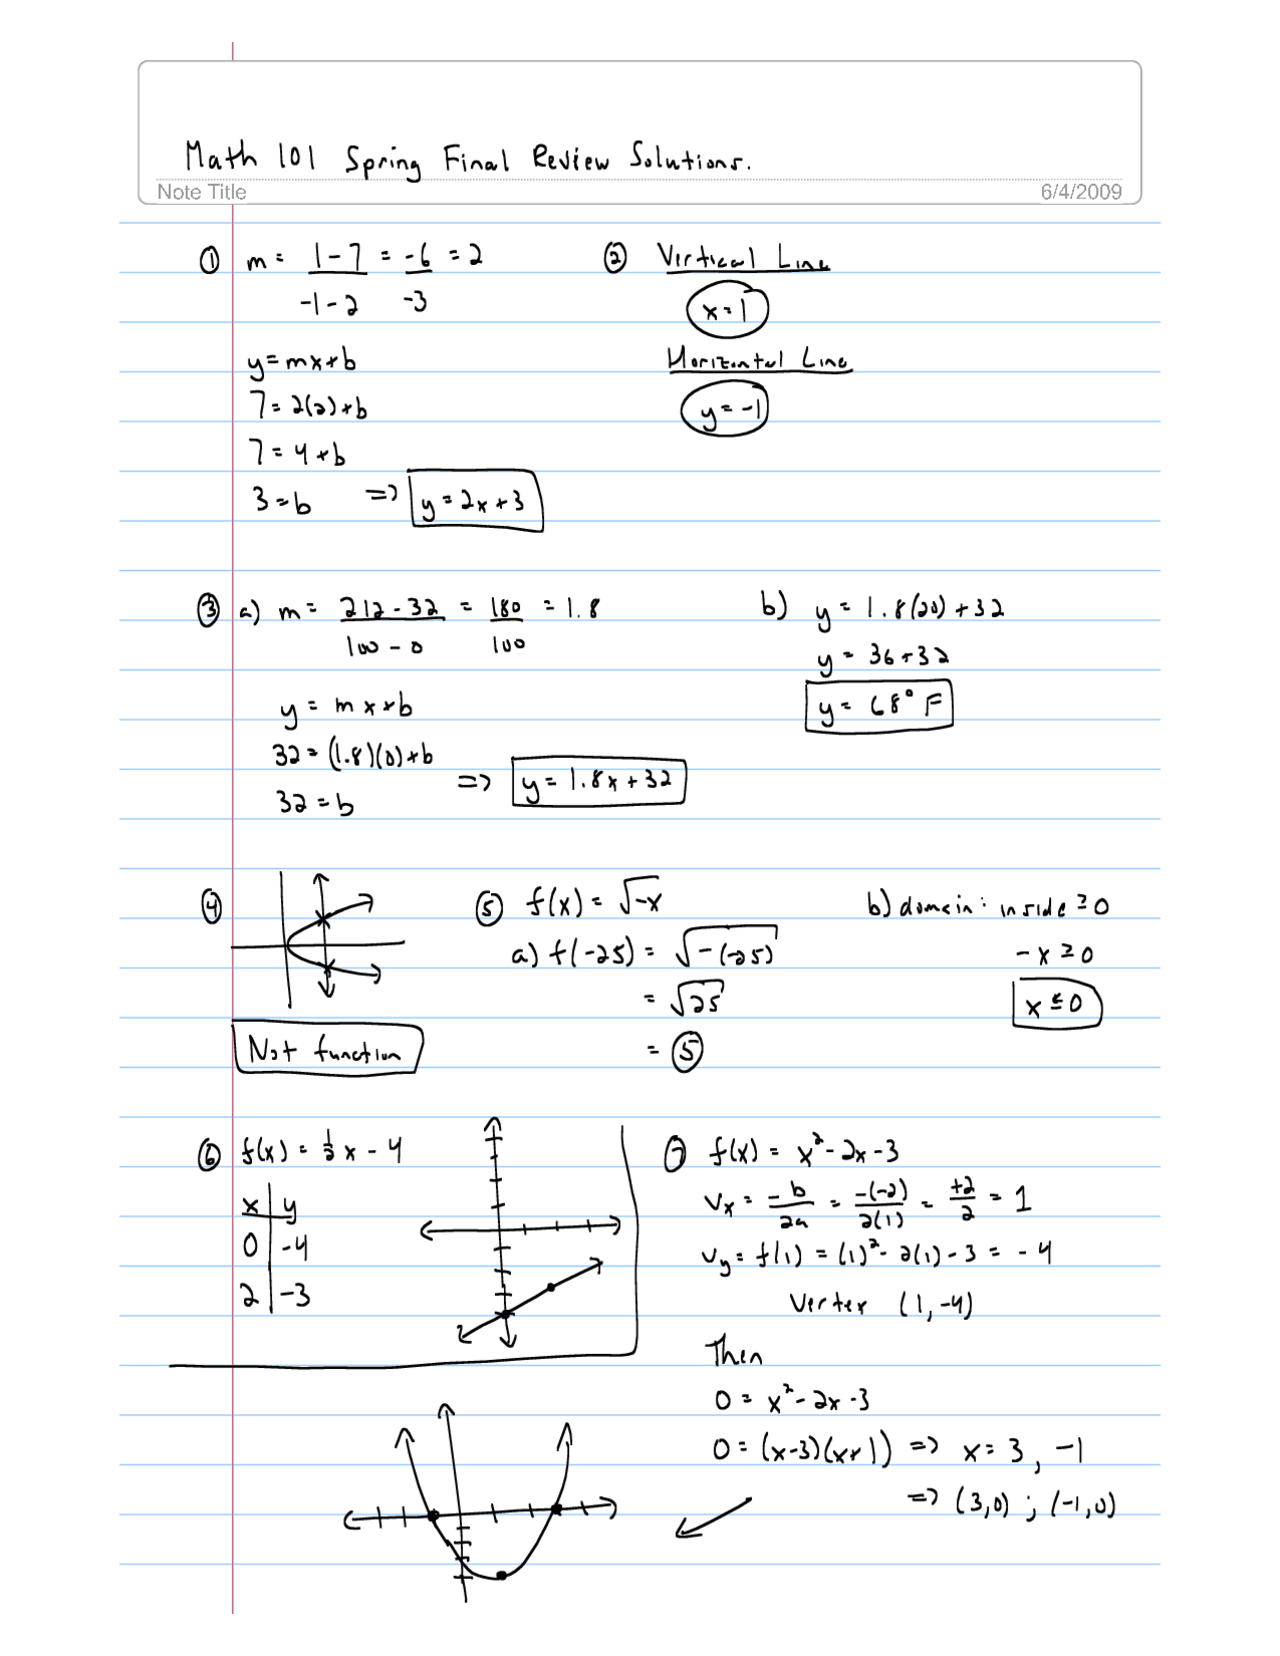 Math 101 Spring Final Review Solutions.
Note Title
6/4/2009
① m = (1-7)/(-1-2) = -6/-3 = 2
y = mx+b
7 = 2(2)+b
7 = 4+b
3 = b => y = 2x+3
② Virtical Line
x=1
Horizontal Line
y=-1
③ a) m = (212-32)/(100-0) = 180/100 = 1.8
y = mx+b
32 = (1.8)(0)+b
32 = b => y = 1.8x+32
b) y = 1.8(20)+32
y = 36+32
y = 68° F
④
Not function
⑤ f(x) = √-x
a) f(-25) = √-(-25)
= √25
= 5
b) domain: inside ≥ 0
-x ≥ 0
x ≤ 0
⑥ f(x) = ½x - 4
x | y
0 | -4
2 | -3
⑦ f(x) = x² - 2x - 3
Vx = -b/2a = -(-2)/2(1) = +2/2 = 1
Vy = f(1) = (1)² - 2(1) - 3 = -4
Vertex (1,-4)
Then
0 = x² - 2x - 3
0 = (x-3)(x+1) => x = 3, -1
=> (3,0) ; (-1,0)